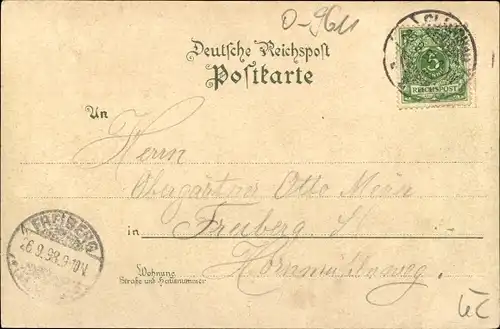 O-9611
GLAUCHAU
5
REICHSPOST
Deutsche Reichspost
Postkarte
An
Herrn
Obergärtner Otto
in Freiberg S.
Wohnung
Straße und Hausnummer
FREIBERG
26.9.98.9-10V